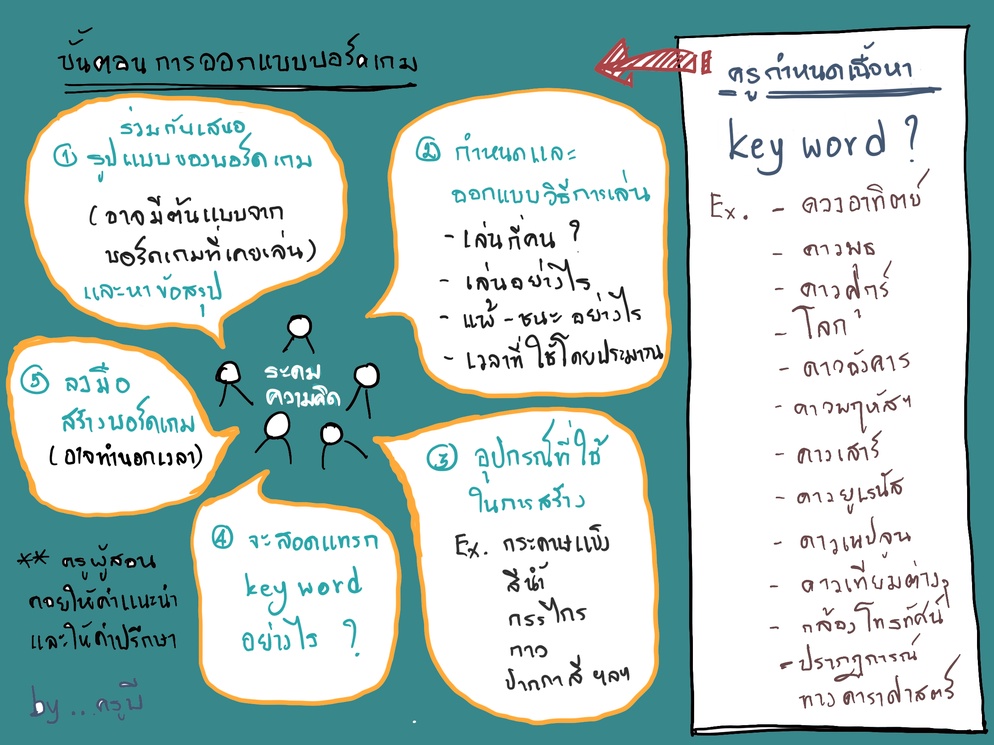 ขั้นตอนการออกแบบบอร์ดเกม
ร่วมกันเสนอ
① รูปแบบของบอร์ดเกม
(อาจมีต้นแบบจาก
บอร์ดเกมที่เคยเล่น)
และหาข้อสรุป
② กำหนดและ
ออกแบบวิธีการเล่น
- เล่นกี่คน ?
- เล่นอย่างไร
- แพ้ - ชนะ อย่างไร
- เวลาที่ใช้โดยประมาณ
ระดม
ความคิด
③ อุปกรณ์ที่ใช้
ในการสร้าง
Ex. กระดาษแข็ง
สีน้ำ
กรรไกร
กาว
ปากกาสี ฯลฯ
④ จะสอดแทรก
key word
อย่างไร ?
⑤ ลงมือ
สร้างบอร์ดเกม
(อาจทำนอกเวลา)
** ครูผู้สอน
คอยให้คำแนะนำ
และให้คำปรึกษา
by ... ครูบี
ครูกำหนดเนื้อหา
key word ?
Ex. - ดวงอาทิตย์
- ดาวพุธ
- ดาวศุกร์
- โลก
- ดาวอังคาร
- ดาวพฤหัสฯ
- ดาวเสาร์
- ดาวยูเรนัส
- ดาวเนปจูน
- ดาวเทียมต่างๆ
- กล้องโทรทัศน์
- ปรากฏการณ์
ทางดาราศาสตร์